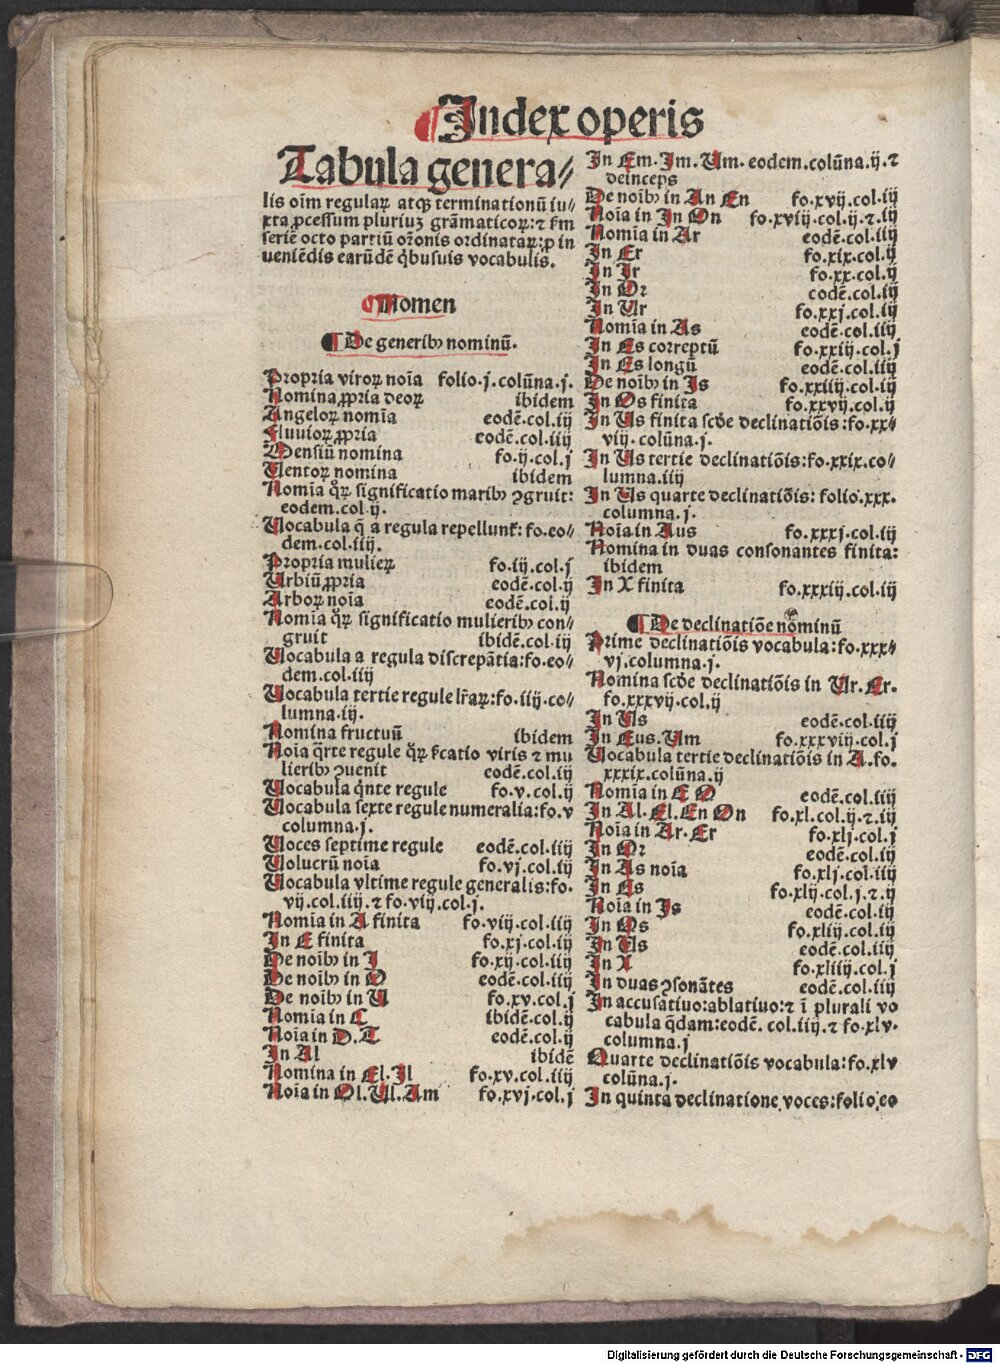 ¶Index operis
Tabula genera⸗
lis oīm regulaꝝ atqꝫ terminationū iu⸗
xta ꝓcessum pluriuꝫ grāmaticoꝝ: ⁊ ẜm
seriē octo partiū oꝛ̄onis oꝛdinataꝝ: ꝓ in
ueniēdis earūdē qͥbusuis vocabulis.
¶Nomen
¶De generibꝰ nominū.
Propria viroꝝ noīa folio.j.colūna.j.
Nomina ꝓpria deoꝝ ibidem
Angeloꝝ nomīa eodē.col.iij
Fluuioꝝ ꝓpria eodē.col.iiij
Mensiū nomina fo.ij.col.j
Uentoꝝ nomina ibidem
Nomīa qͦꝝ significatio maribꝰ ꝯgruit:
eodem.col.ij.
Uocabula q̄ a regula repellunt̃: fo.eo⸗
dem.col.iij.
Propria mulieꝝ fo.iij.col.j
Urbiū ꝓpria eodē.col.ij
Arboꝝ noīa eodē.col.ij
Nomīa qͦꝝ significatio mulieribꝰ con⸗
gruit ibidē.col.iij
Uocabula a regula discrepātia: fo.eo⸗
dem.col.iiij
Uocabula tertie regule lr̄aꝝ: fo.iiij.co⸗
lumna.ij.
Nomina fructuū ibidem
Noīa q̄rte regule qͦꝝ ẜcatio viris ⁊ mu
lieribꝰ ꝯuenit eodē.col.iij
Uocabula qͥnte regule fo.v.col.ij
Uocabula sexte regule numeralia: fo.v
columna.j.
Uoces septime regule eodē.col.iiij
Uolucrū noīa fo.vj.col.iij
Uocabula vltime regule generalis: fo.
vij.col.iiij.⁊ fo.viij.col.j.
Nomīa in A finita fo.viij.col.iiij
In E finita fo.xj.col.iij
De noībꝰ in I fo.xij.col.iij
De noībꝰ in O eodē.col.iiij
De noībꝰ in U fo.xv.col.j
Nomīa in C ibidē.col.ij
Noīa in D.T eodē.col.ij
In Al ibidē
Nomina in El.Il fo.xv.col.iiij
Noīa in Ol.Ul.Am fo.xvj.col.j
In Em.Im.Um. eodem.colūna.ij.⁊
deinceps
De noībꝰ in An En fo.xvij.col.iij
Noīa in In On fo.xviij.col.ij.⁊.iij
Nomīa in Ar eodē.col.iij
In Er fo.xix.col.ij
In Ir fo.xx.col.ij
In Oꝛ eodē.col.iij
In Ur fo.xxj.col.iij
Nomīa in As eodē.col.iiij
In Es coꝛreptū fo.xxiij.col.j
In Es longū eodē.col.iiij
De noībꝰ in Is fo.xxiiij.col.iij
In Os finita fo.xxvij.col.ij
In Us finita scḋe declinatiōis: fo.xx⸗
viij.colūna.j.
In Us tertie declinatiōis: fo.xxix.co⸗
lumna.iiij
In Us quarte declinatiōis: folio.xxx.
columna.j.
Noīa in Aus fo.xxxj.col.iij
Nomina in duas consonantes finita:
ibidem
In X finita fo.xxxiij.col.iij
¶De declinatiōe nominū
Prime declinatiōis vocabula: fo.xxx⸗
vj.columna.j.
Nomina scḋe declinatiōis in Ur.Er.
fo.xxxvij.col.ij
In Us eodē.col.iiij
In Eus.Um fo.xxxviij.col.j
Uocabula tertie declinatiōis in A.fo.
xxxix.colūna.ij
Nomīa in E O eodē.col.iiij
In Al.El.En On fo.xl.col.ij.⁊.iij
Noīa in Ar.Er fo.xlj.col.j
In Oꝛ eodē.col.iij
In As noīa fo.xlj.col.iiij
In Es fo.xlij.col.j.⁊.ij
Noīa in Is eodē.col.iij
In Os fo.xliij.col.ij
In Us eodē.col.iiij
In X fo.xliiij.col.j
In duas ꝯsonātes eodē.col.iiij
In accusatiuo: ablatiuo: ⁊ ī plurali vo
cabula q̄dam: eodē.col.iiij.⁊ fo.xlv.
columna.j
Quarte declinatiōis vocabula: fo.xlv
colūna.j.
In quinta declinatione voces: folio.eo
Digitalisierung gefördert durch die Deutsche Forschungsgemeinschaft - DFG